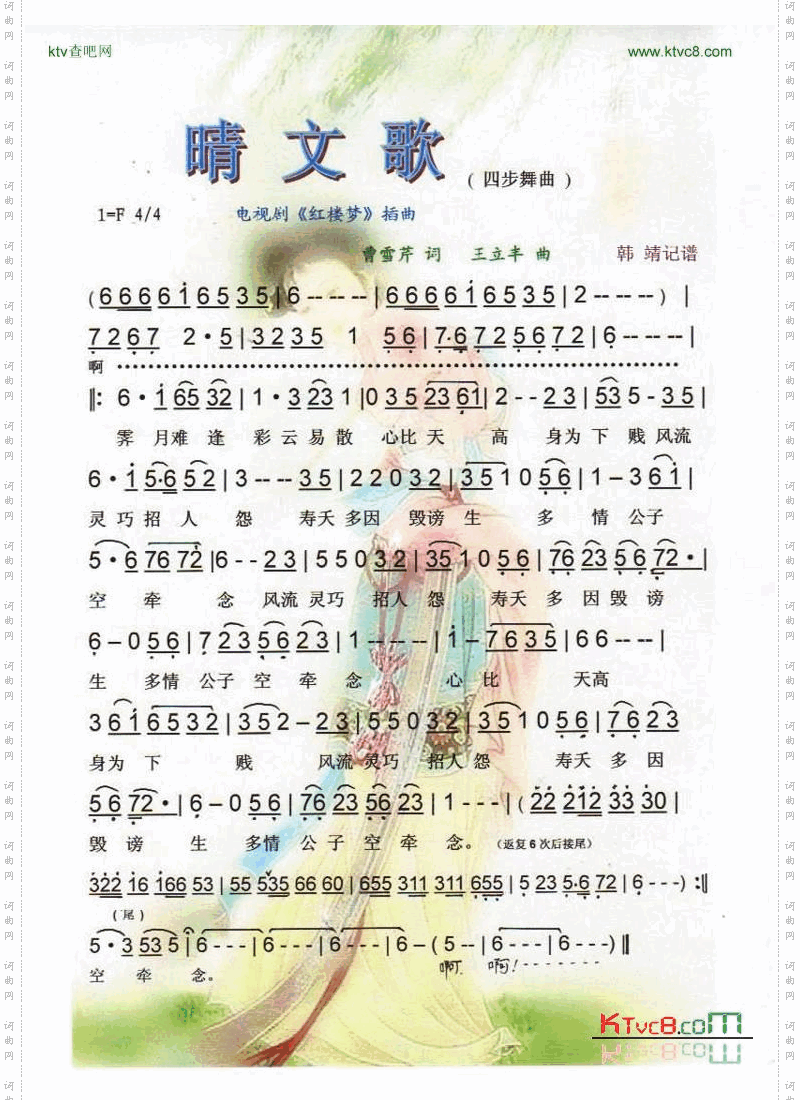 ktv查吧网 www.ktvc8.com
晴文歌
(四步舞曲)
1=F 4/4 电视剧《红楼梦》插曲
曹雪芹 词 王立丰 曲 韩 靖记谱
(6 6 6 6 6 i 6 5 3 5 | 6 - - - - | 6 6 6 6 6 i 6 5 3 5 | 2 - - - - ) |
7 2 6 7 2 · 5 | 3 2 3 5 1 5 6 | 7 · 6 7 2 5 6 7 2 | 6 - - - - |
啊
‖: 6 · i 6 5 3 2 | 1 · 3 2 3 1 | 0 3 5 2 3 6 1 | 2 - - 2 3 | 5 3 5 - 3 5 |
霁 月难 逢 彩 云 易 散 心比 天 高 身为 下 贱风流
6 · i 5 · 6 5 2 | 3 - - - 3 5 | 2 2 0 3 2 | 3 5 1 0 5 6 | 1 - 3 6 i |
灵 巧 招 人 怨 寿夭 多因 毁谤 生 多 情 公子
5 · 6 7 6 7 2 | 6 - - 2 3 | 5 5 0 3 2 | 3 5 1 0 5 6 | 7 6 2 3 5 6 7 2 · |
空 牵 念 风流 灵巧 招人 怨 寿夭 多 因 毁 谤
6 - 0 5 6 | 7 2 3 5 6 2 3 | 1 - - - - | i - 7 6 3 5 | 6 6 - - |
生 多情 公子 空 牵 念 心 比 天高
3 6 i 6 5 3 2 | 3 5 2 - 2 3 | 5 5 0 3 2 | 3 5 1 0 5 6 | 7 6 2 3
身为 下 贱 风流 灵巧 招人 怨 寿夭 多 因
5 6 7 2 · | 6 - 0 5 6 | 7 6 2 3 5 6 2 3 | 1 - - - | (2 2 2 1 2 3 3 3 0 |
毁 谤 生 多情 公 子 空 牵 念。 (返复6次后接尾)
3 2 2 1 6 1 6 6 5 3 | 5 5 5 3 5 6 6 6 0 | 6 5 5 3 1 1 3 1 1 6 5 5 | 5 2 3 5 · 6 7 2 | 6 - - - ) :‖
(尾)
5 · 3 5 3 5 | 6 - - - | 6 - - - | 6 - - - | 6 - ( 5 - - | 6 - - - | 6 - - - ) ‖
空 牵 念。 啊 啊!
KTvc8.com